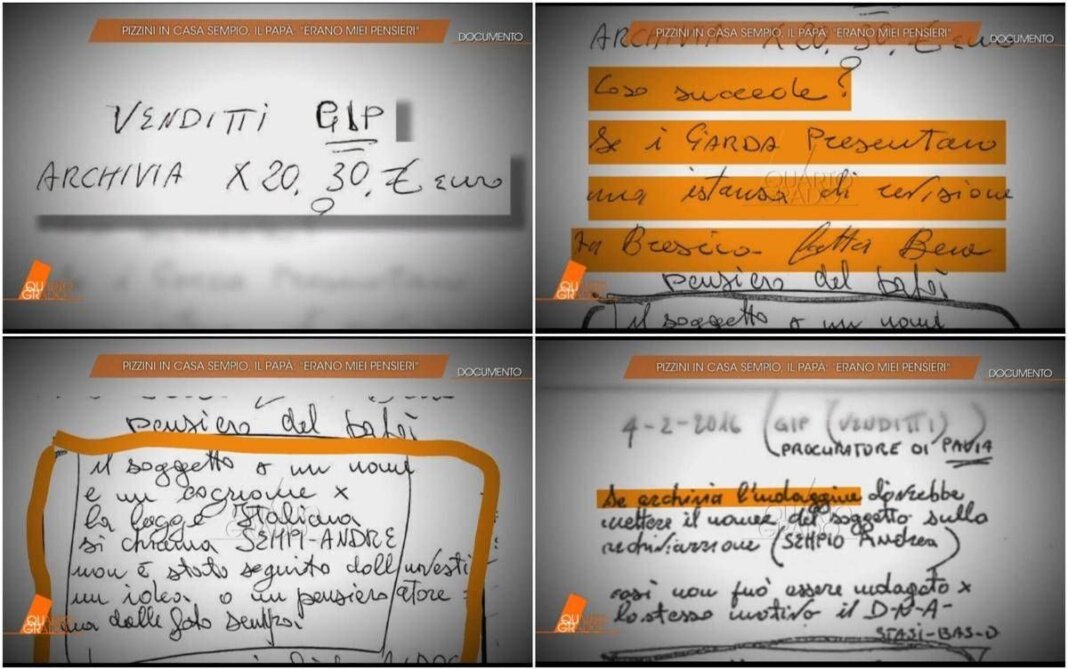 PIZZINI IN CASA SEMPIO, IL PAPÀ: "ERANO MIEI PENSIERI"
DOCUMENTO
VENDITTI GIP
ARCHIVIA X 20. 30. € euro
QUARTO GRADO
PIZZINI IN CASA SEMPIO, IL PAPÀ: "ERANO MIEI PENSIERI"
DOCUMENTO
ARCHIVIA X 20. 30. € euro
Cosa succede?
Se i GARDA Presentano
una istansa di revisione
Brescia fatta Bene
pensiero del
il soggetto a un nome
QUARTO GRADO
PIZZINI IN CASA SEMPIO, IL PAPÀ: "ERANO MIEI PENSIERI"
DOCUMENTO
pensiero del
il soggetto a un nome
e un cognome x
la legge Italiana
si chiama SEMPI-ANDRE
non è stato seguito dall'investi
un idea o un pensiero atore
ma dalle foto
QUARTO GRADO
PIZZINI IN CASA SEMPIO, IL PAPÀ: "ERANO MIEI PENSIERI"
DOCUMENTO
4-2-2016 (GIP (VENDITTI)
PROCURATORE DI PAVIA
Se archivia l'indaggine dovrebbe
mettere il nome del soggetto sulla
(SEMPIO Andrea)
cosi non può essere indagato x
lo stesso motivo il D-N-A-
STASI-BAS-O
QUARTO GRADO